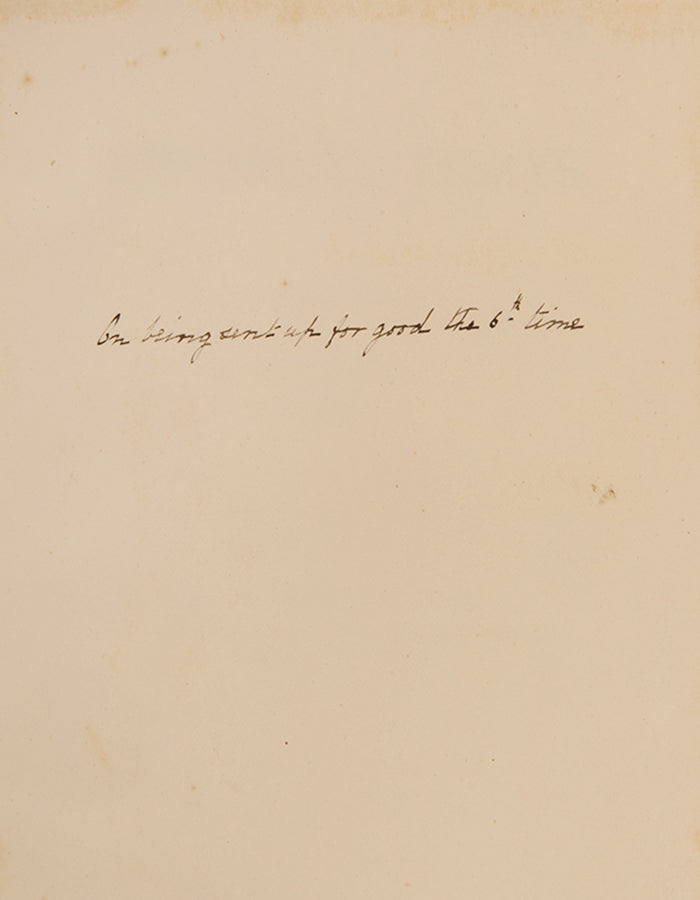 On being sent up for good the 6th time